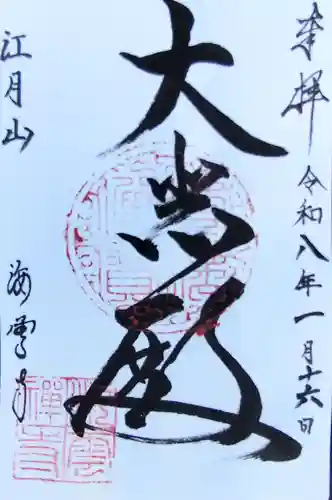 奉拝 令和八年一月十六日
大悲殿
江月山 海雲寺
海雲
禪寺